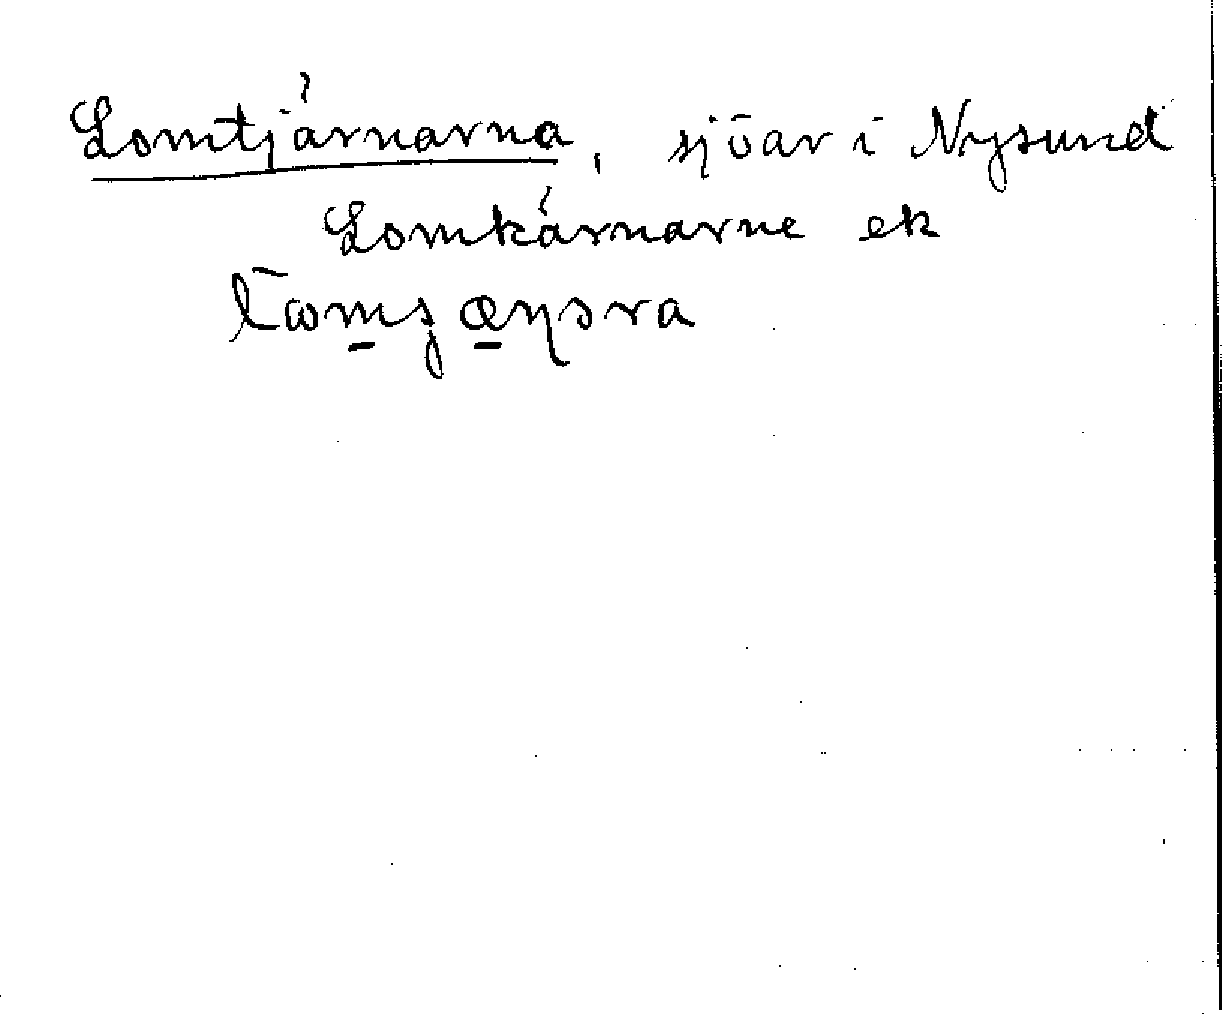 Lomtjärnarna, sjöar i Nysund
Lomkärnarne ek